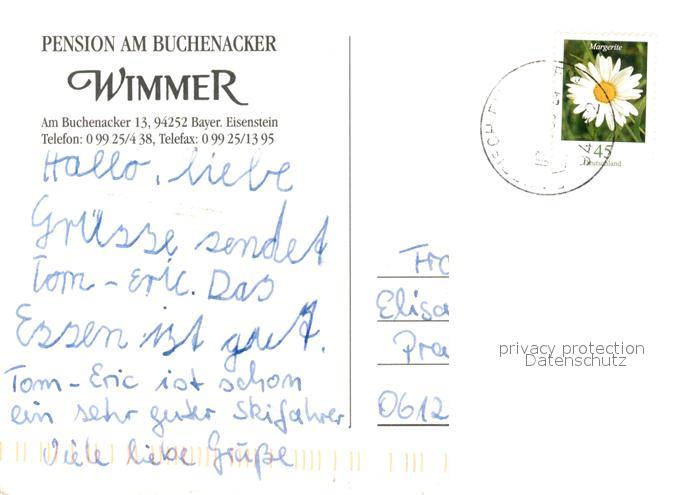 PENSION AM BUCHENACKER
WIMMER
Am Buchenacker 13, 94252 Bayer. Eisenstein
Telefon: 0 99 25/4 38, Telefax: 0 99 25/13 95
Hallo, liebe
Grüsse sendet
Tom - Eric. Das
Essen ist gut.
Tom - Eric ist schon
ein sehr guter Skifahrer
Viele liebe Grüße
Margerite
45
Deutschland
Elisa
0612
privacy protection
Datenschutz